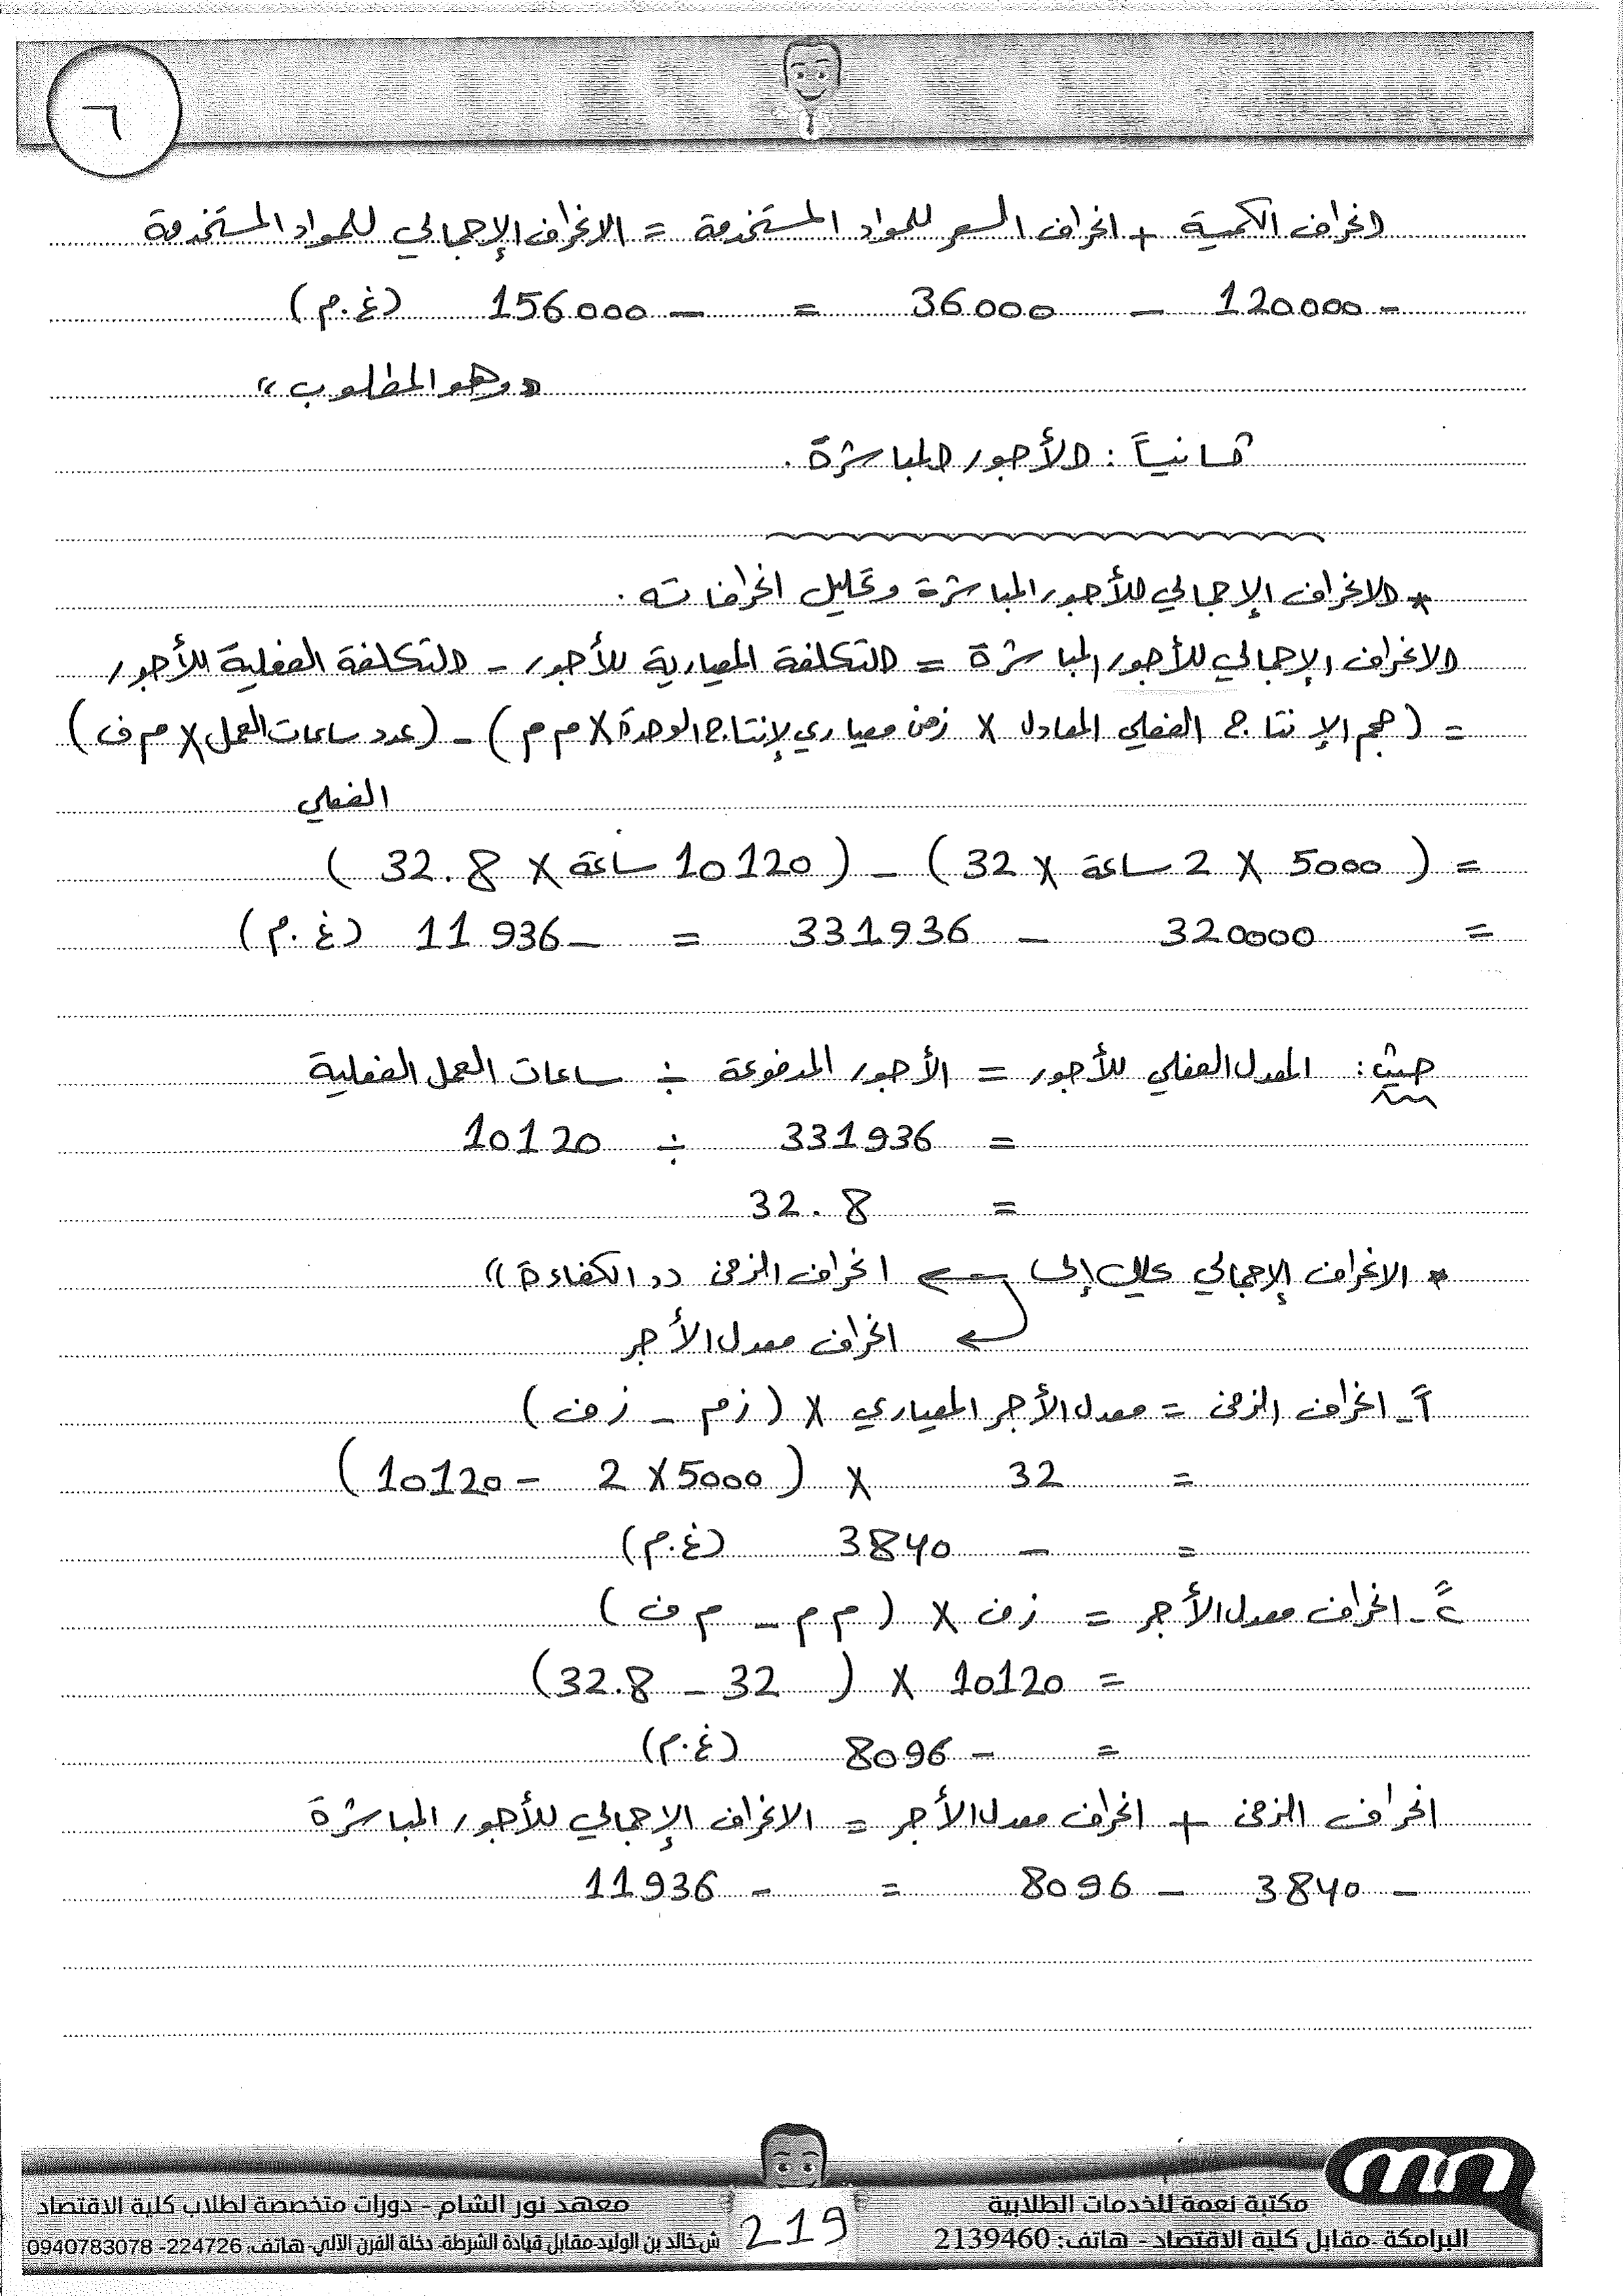 ٦
انحراف الكمية + انحراف السعر للمواد المستخدمة = الانحراف الإجمالي للمواد المستخدمة
- 120000 - 36000 = - 156000 (غ.م)
«وهو المطلوب»
ثانياً: الأجور المباشرة.
* الانحراف الإجمالي للأجور المباشرة وتحليل انحرافاته.
الانحراف الإجمالي للأجور المباشرة = التكلفة المعيارية للأجور - التكلفة الفعلية للأجور
= (حجم الإنتاج الفعلي المعادل X زمن معياري لإنتاج الوحدة X م م) - (عدد ساعات العمل X م ف)
الفعلي
= (5000 X 2 ساعة X 32) - (10120 ساعة X 32.8)
= 320000 - 331936 = - 11936 (غ.م)
حيث: المعدل الفعلي للأجور = الأجور المدفوعة ÷ ساعات العمل الفعلية
= 331936 ÷ 10120
= 32.8
* الانحراف الإجمالي يحلل إلى ← انحراف الزمن «الكفاءة»
← انحراف معدل الأجر
1- انحراف الزمن = معدل الأجر المعياري X (ز م - ز ف)
= 32 X (5000 X 2 - 10120)
= - 3840 (غ.م)
2- انحراف معدل الأجر = ز ف X (م م - م ف)
= 10120 X (32 - 32.8)
= - 8096 (غ.م)
انحراف الزمن + انحراف معدل الأجر = الانحراف الإجمالي للأجور المباشرة
- 3840 - 8096 = - 11936
مكتبة نعمة للخدمات الطلابية
البرامكة - مقابل كلية الاقتصاد - هاتف: 2139460
219
معهد نور الشام - دورات متخصصة لطلاب كلية الاقتصاد
ش خالد بن الوليد - مقابل قيادة الشرطة - دخلة الفرن الآلي - هاتف: 224726 - 0940783078